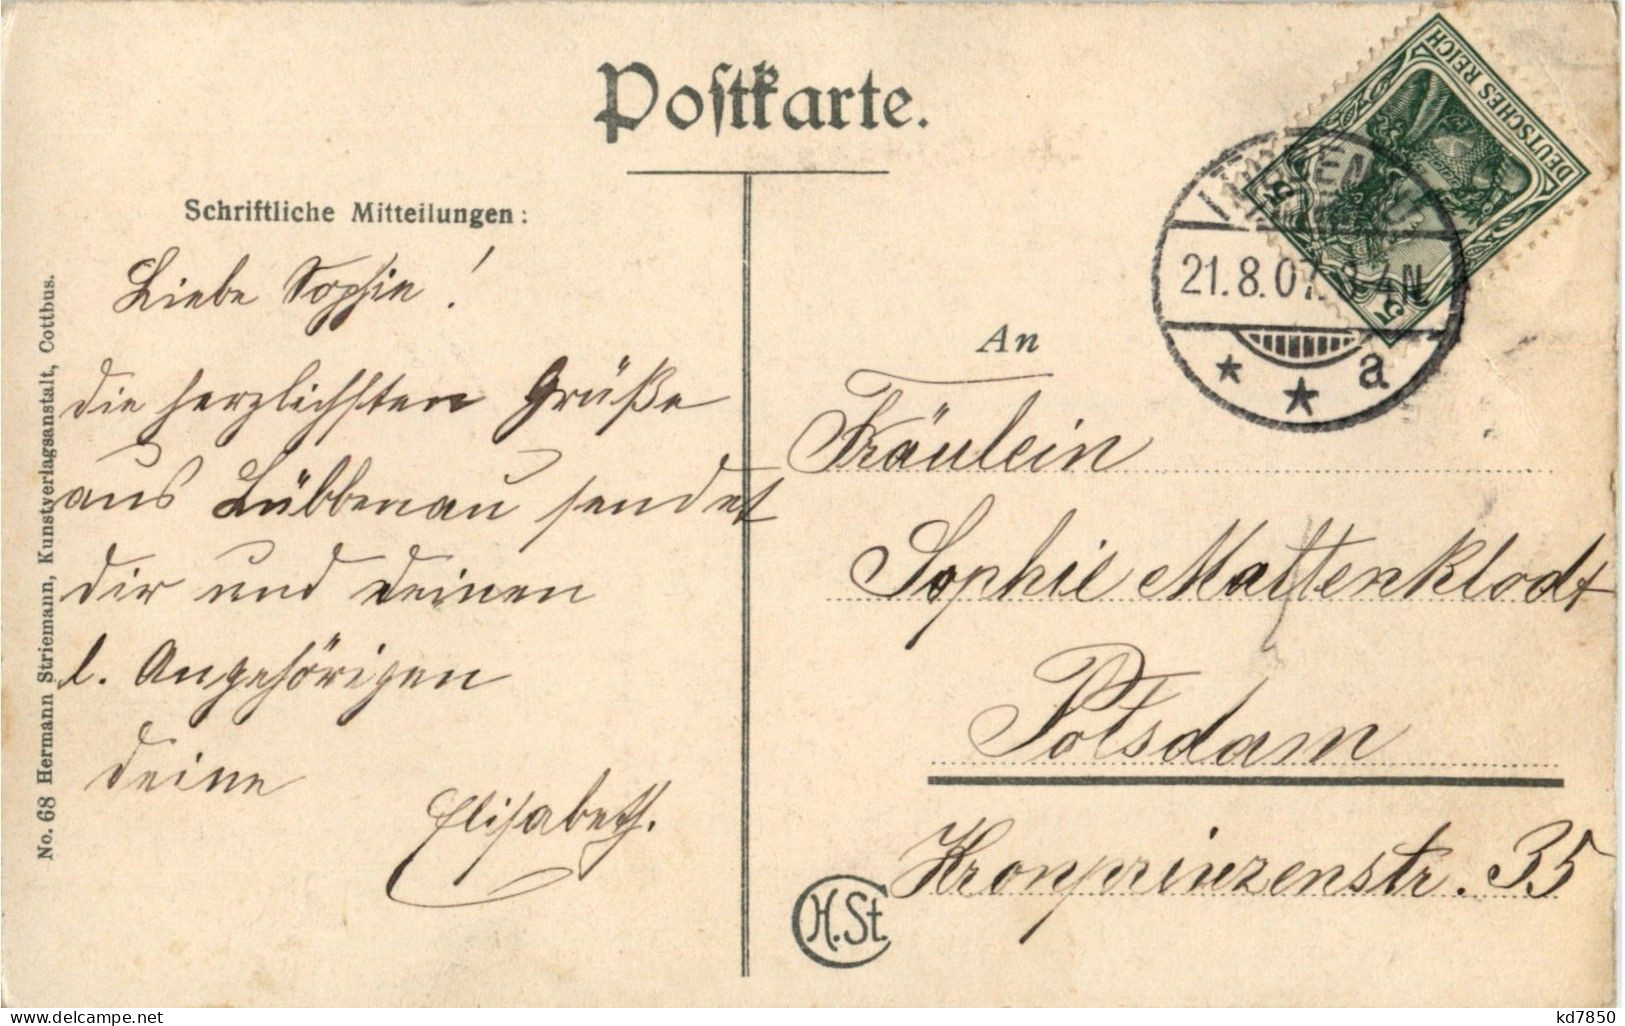 Postkarte.
Schriftliche Mitteilungen:
Liebe Sophie!
die herzlichsten Grüße
aus Lübbenau sendet
dir und deinen
l. Angehörigen
deine
Elisabeth.
No. 68 Hermann Striemann, Kunstverlagsanstalt, Cottbus.
DEUTSCHES REICH
5
5
21.8.07. 3-4N
a
An
Fräulein
Sophie Mattenklodt
Potsdam
Kronprinzenstr. 35
H.St.
kd7850